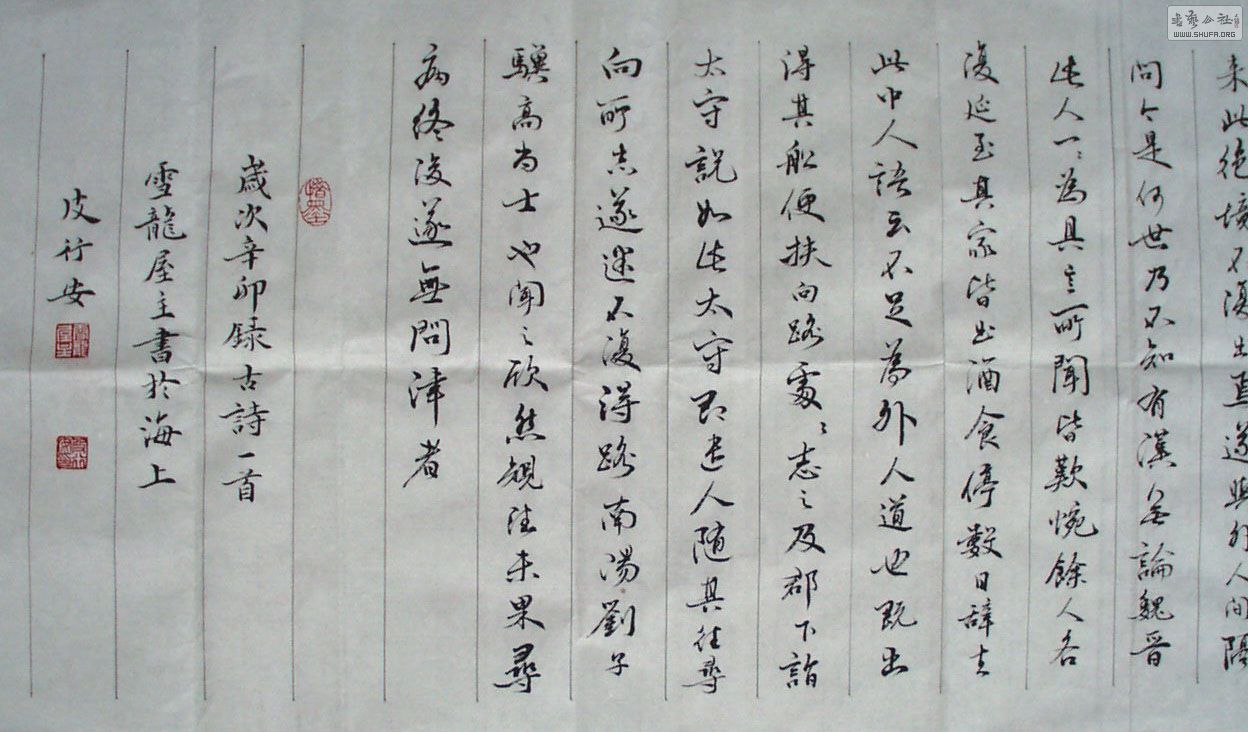 来此絶境不復出焉遂與外人间隔
問今是何世乃不知有漢無論魏晉
此人一々為具言所聞皆歎惋餘人各
復延至其家皆出酒食停數日辭去
此中人語云不足為外人道也既出
得其船便扶向路處々志之及郡下詣
太守説如此太守即遣人随其往尋
向所志遂迷不復得路南陽劉子
驥高尚士也聞之欣然規往未果尋
病終後遂無問津者
歲次辛卯録古詩一首
雪龍屋主書於海上
皮行安
書藝公社
WWW.SHUFA.ORG